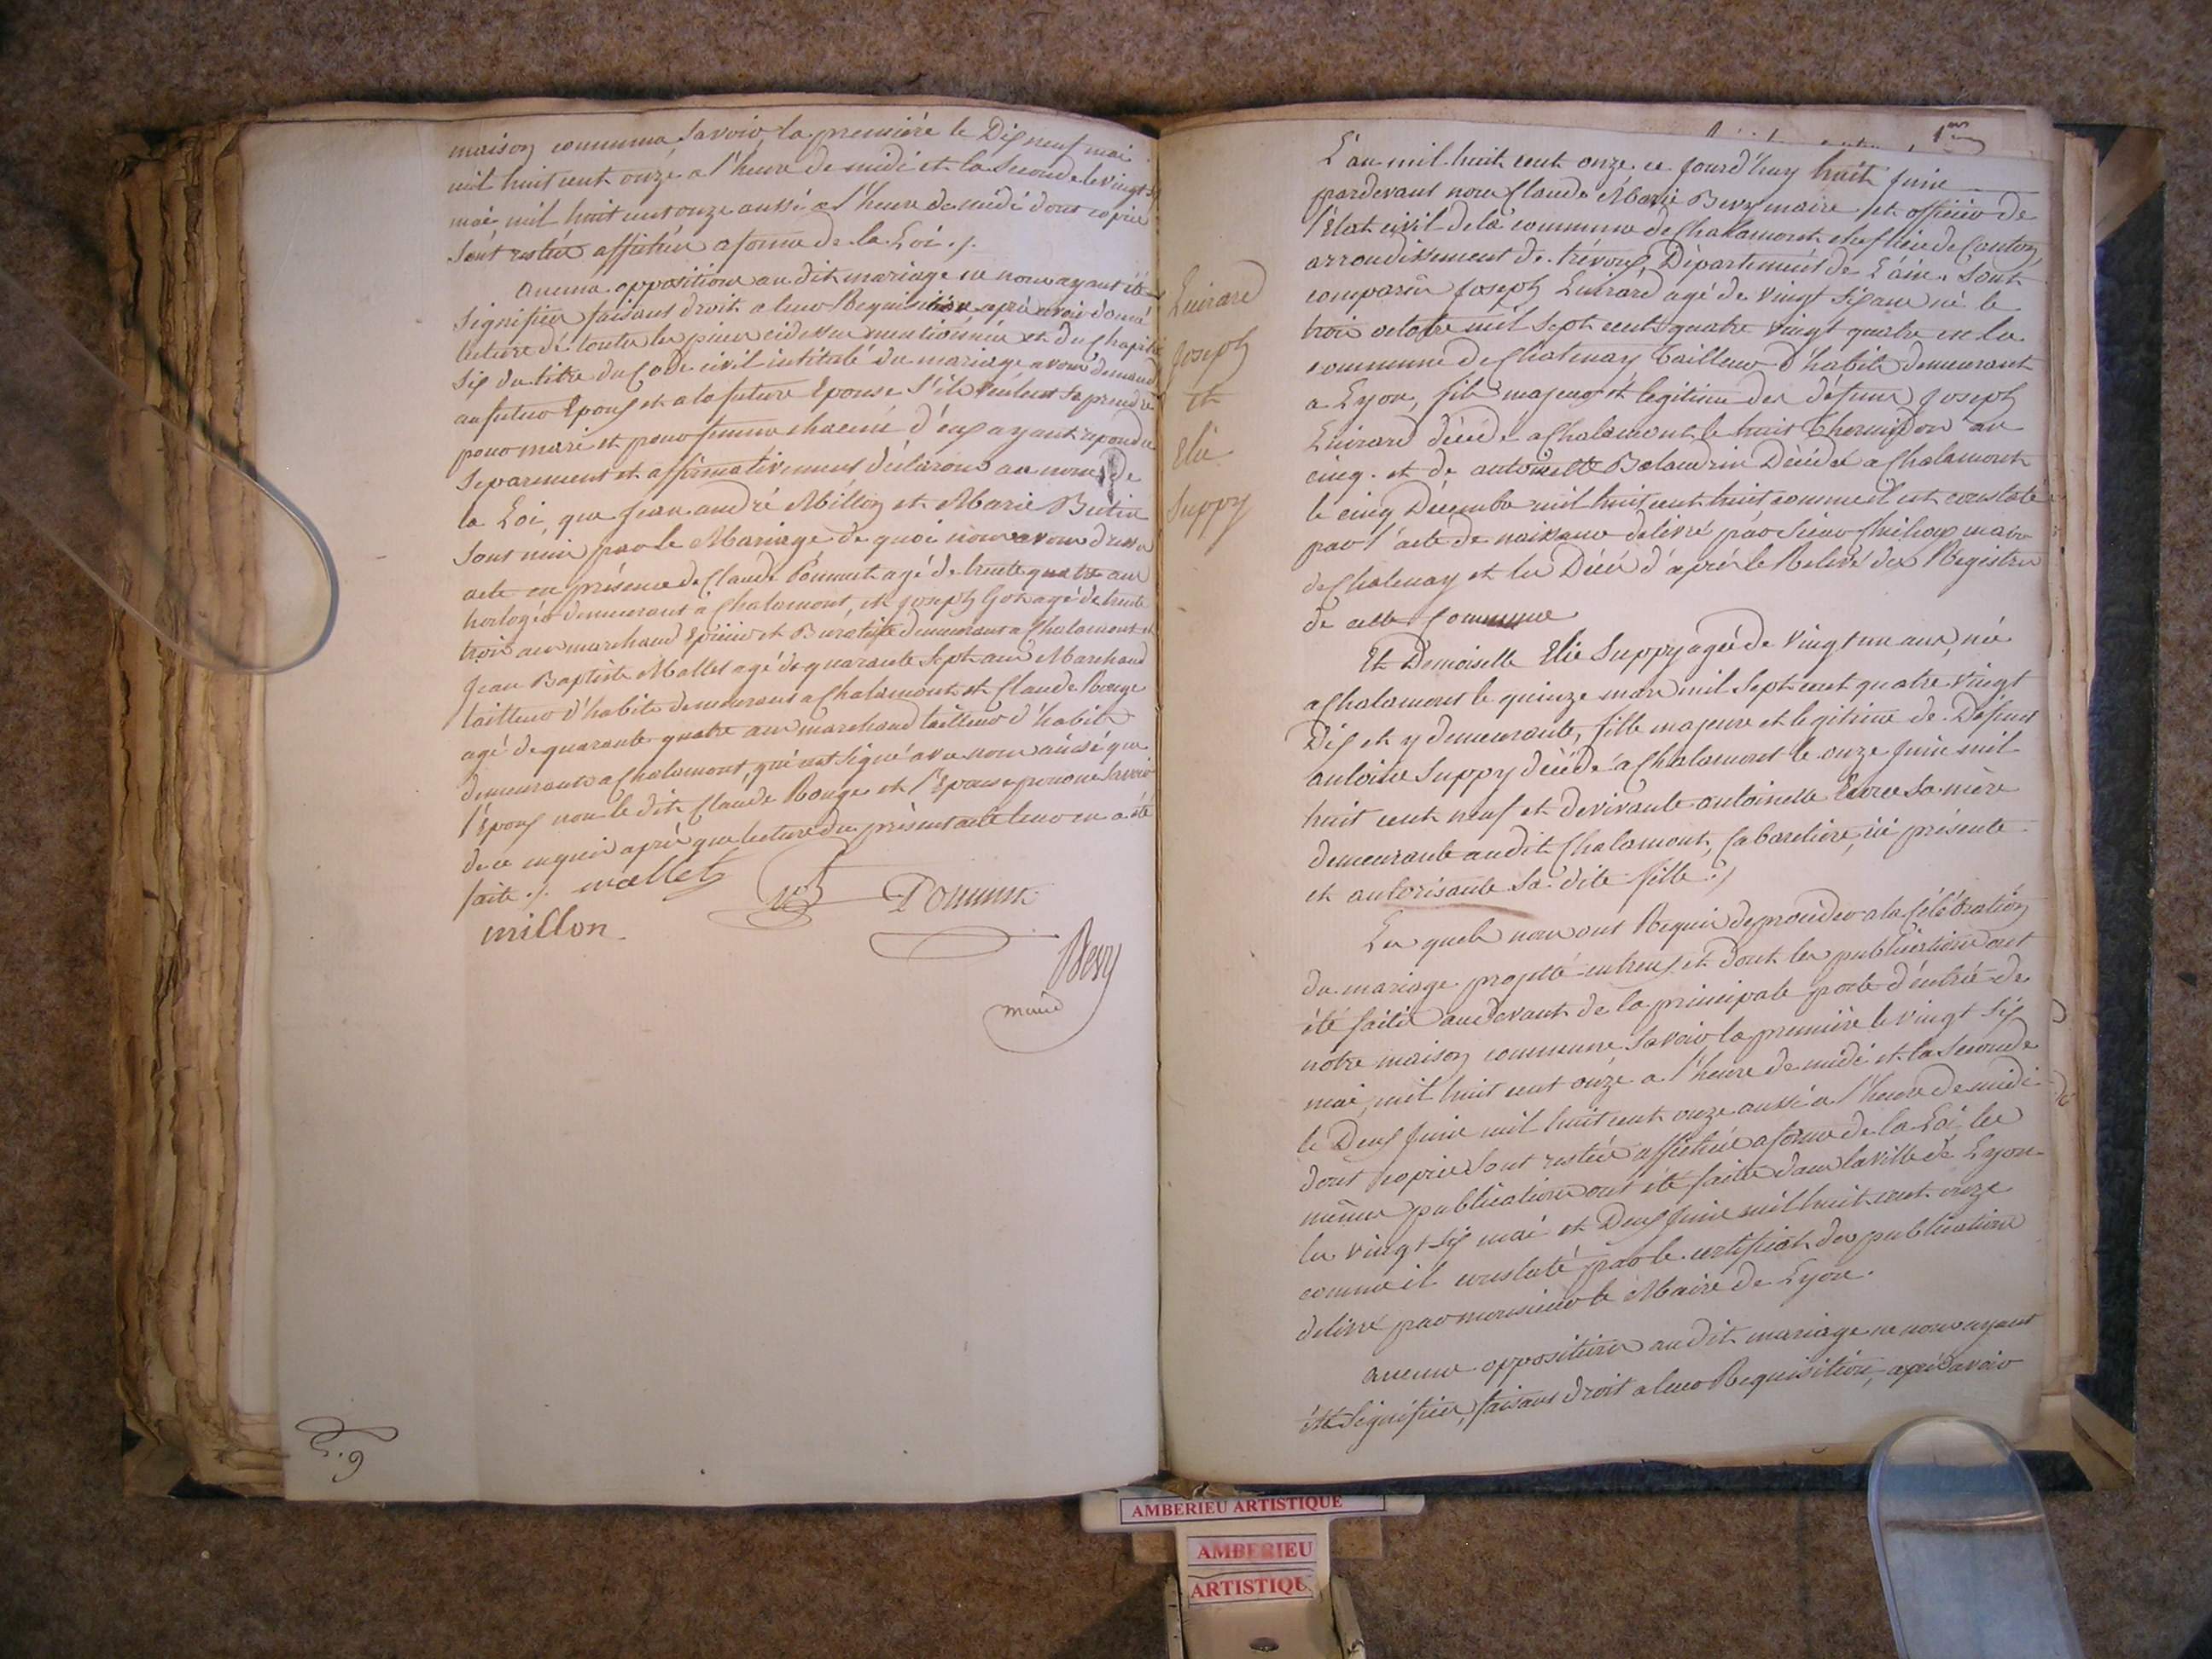 maison commune, savoir, la première le Dix neuf mai
mil huit cent onze a l'heure de midi et la seconde le vingt six
mai mil huit cent onze aussi a l'heure de midi dont copies
sont restées affichées a forme de la Loi ./.
aucunes oppositions au dit mariage ne nous ayant été
signifiées faisant droit a leur Requisition après avoir donné
lecture de toutes les pièces cidessus mentionnées et du Chapitre
six du titre du Code civil intitulé du mariage avons demandé
au futur Epoux et a la future Epouse s'ils veulent se prendre
pour mari et pour femme chacun d'eux ayant répondu
séparément et affirmativement déclarons au nom de
la Loi, que jean andré Millon et Marie Butin
sont unis par le Mariage de quoi nous avons dressé
acte en présence de Claude Pommet agé de trente quatre ans
horloger demeurant à Chalamont, et joseph agé de trente
trois ans marchand Epicier et demeurant a Chalamont et
jean Baptiste Mallet agé de quarante sept ans Marchand
tailleur d'habits demeurant a Chalamont et Claude Rouge
agé de quarante quatre ans marchand tailleur d'habits
demeurant a Chalamont, qui ont signé avec nous ainsi que
l'époux non le dit Claude Rouge et l'Epouse pour ne savoir
de ce enquis après que lecture du présent acte leur en a été
faite ./. mallet Pommet
millon
Bevy
maire
1er
Luirard
joseph
et
Elie
Suppy
L'an mil huit cent onze ce jourd'huy huit juin
pardevant nous Claude Marie Bevy maire et officier de
l'Etat civil de la commune de Chalamont chef lieu de Canton
arrondissement de trévoux, Département de L'ain. Sont
comparus joseph Luirard agé de vingt six ans né le
trois octobre mil sept cent quatre vingt quatre en la
commune de Chatenay tailleur d'habits demeurant
a Lyon, fils majeur et légitime des défunts joseph
Luirard décédé a Chalamont le huit Thermidor an
cinq. et de antoinette Balandrin Décédée a Chalamont
le cinq Décembre mil huit cent huit comme il est constaté
par l'acte de naissance delivré par sieur maire
de Chatenay et les Décès d'après le Relevé des Registres
de cette Commune
Et Demoiselle Elie Suppy agée de vingt un ans, née
a Chalamont le quinze mars mil sept cent quatre vingt
Dix et y demeurante, fille majeure et légitime de Défunt
antoine Suppy décédé a Chalamont le onze juin mil
huit cent neuf et de vivante antoinette sa mère
demeurante audit Chalamont, Cabaretière, ici présente
et autorisante sa dite fille ./.
Les quels nous ont Requis de procéder a la Célébration
du mariage projetté entreux et dont les publications ont
été faites audevant de la principale porte d'entrée de
notre maison commune savoir la première le vingt six
mai, mil huit cent onze a l'heure de midi et la seconde
le Deux juin mil huit cent onze aussi a l'heure de midi
dont copies sont restées affichées a forme de la Loi les
mêmes publications ont été faites dans la ville de Lyon
les vingt six mai et Deux juin mil huit cent onze
comme il constaté par le certificat des publications
delivré par monsieur le Maire de Lyon.
aucunes oppositions au dit mariage ne nous ayant
été signifiées, faisant droit a leur Requisition, après avoir
AMBERIEU ARTISTIQUE
AMBERIEU
ARTISTIQU